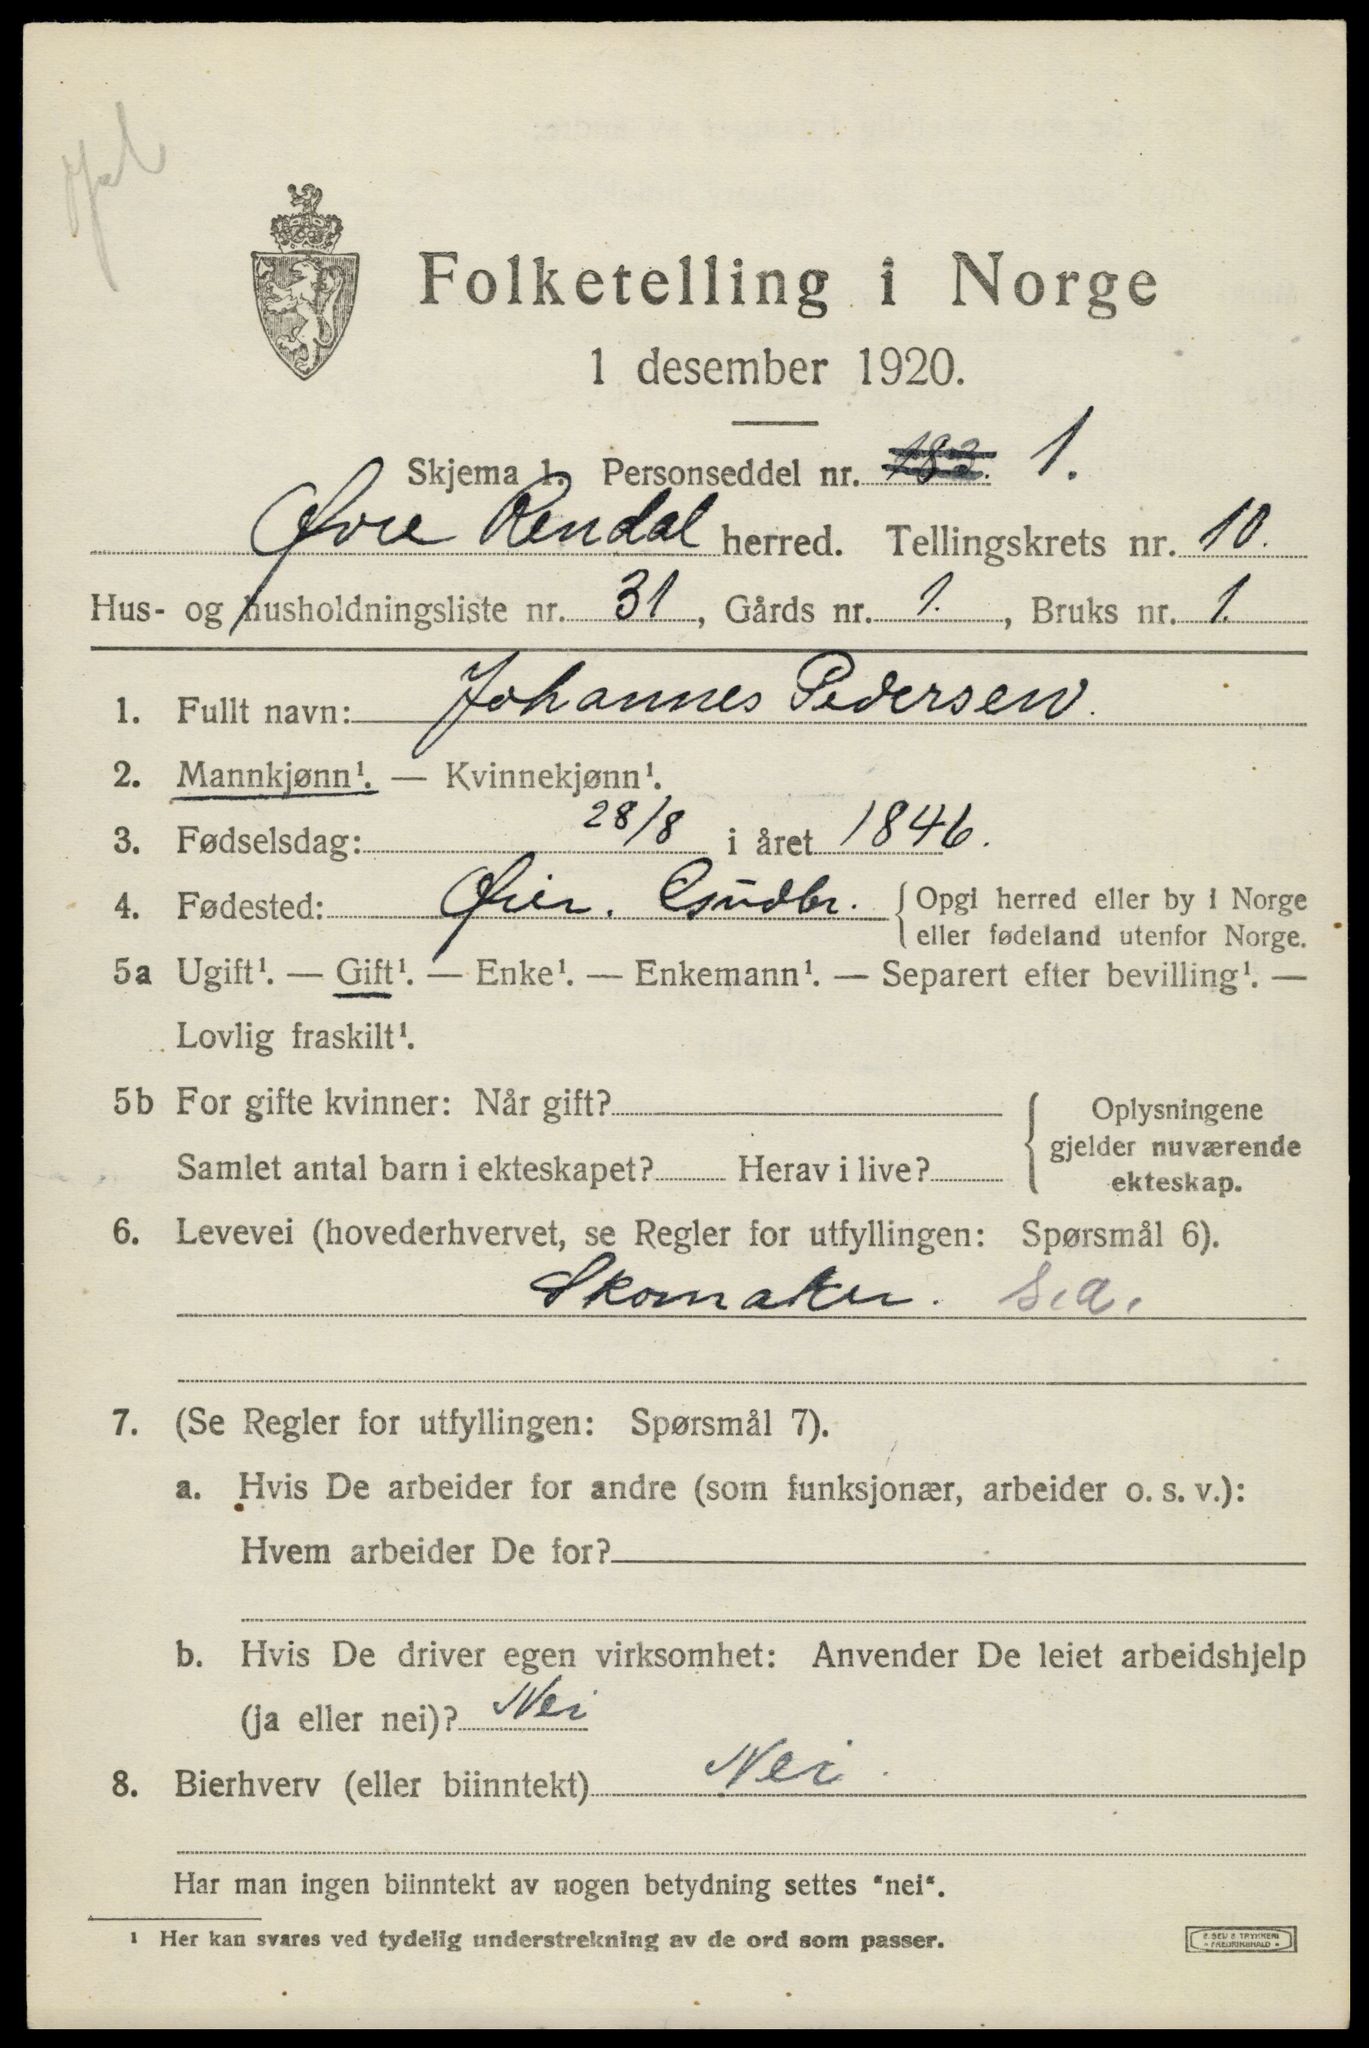 Folketelling i Norge
1 desember 1920.
Skjema 1. Personseddel nr. 183. 1.
Øvre Rendal herred. Tellingskrets nr. 10.
Hus- og husholdningsliste nr. 31, Gårds nr. 1., Bruks nr. 1.
1. Fullt navn: Johannes Pedersen.
2. Mannkjønn¹. — Kvinnekjønn¹.
3. Fødselsdag: 28/8 i året 1846.
4. Fødested: Øier. Gudbr. { Opgi herred eller by i Norge
eller fødeland utenfor Norge.
5a Ugift¹. — Gift¹. — Enke¹. — Enkemann¹. — Separert efter bevilling¹. —
Lovlig fraskilt¹.
5b For gifte kvinner: Når gift?
Samlet antal barn i ekteskapet? Herav i live?
{ Oplysningene
gjelder nuværende
ekteskap.
6. Levevei (hovederhvervet, se Regler for utfyllingen: Spørsmål 6).
Skomaker. s.a.
7. (Se Regler for utfyllingen: Spørsmål 7).
a. Hvis De arbeider for andre (som funksjonær, arbeider o. s. v.):
Hvem arbeider De for?
b. Hvis De driver egen virksomhet: Anvender De leiet arbeidshjelp
(ja eller nei)? Nei
8. Bierhverv (eller biinntekt) Nei.
Har man ingen biinntekt av nogen betydning settes "nei".
¹ Her kan svares ved tydelig understrekning av de ord som passer.